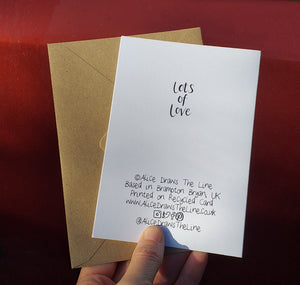 Lots
of
Love
©Alice Draws The Line
Based in Brampton Bryan, UK
Printed on Recycled Card
www.AliceDrawsTheLine.co.uk
@AliceDrawsTheLine